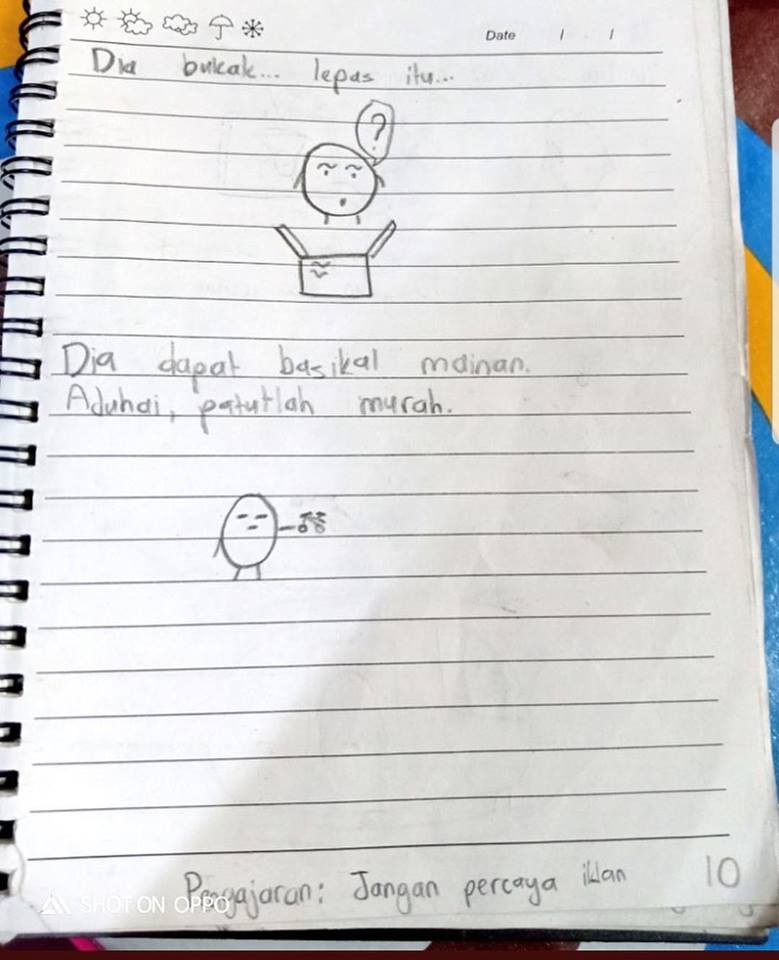 Date / /
Dia bukak... lepas itu...
?
Dia dapat basikal mainan.
Aduhai, patutlah murah.
Pengajaran: Jangan percaya iklan
10
SHOT ON OPPO